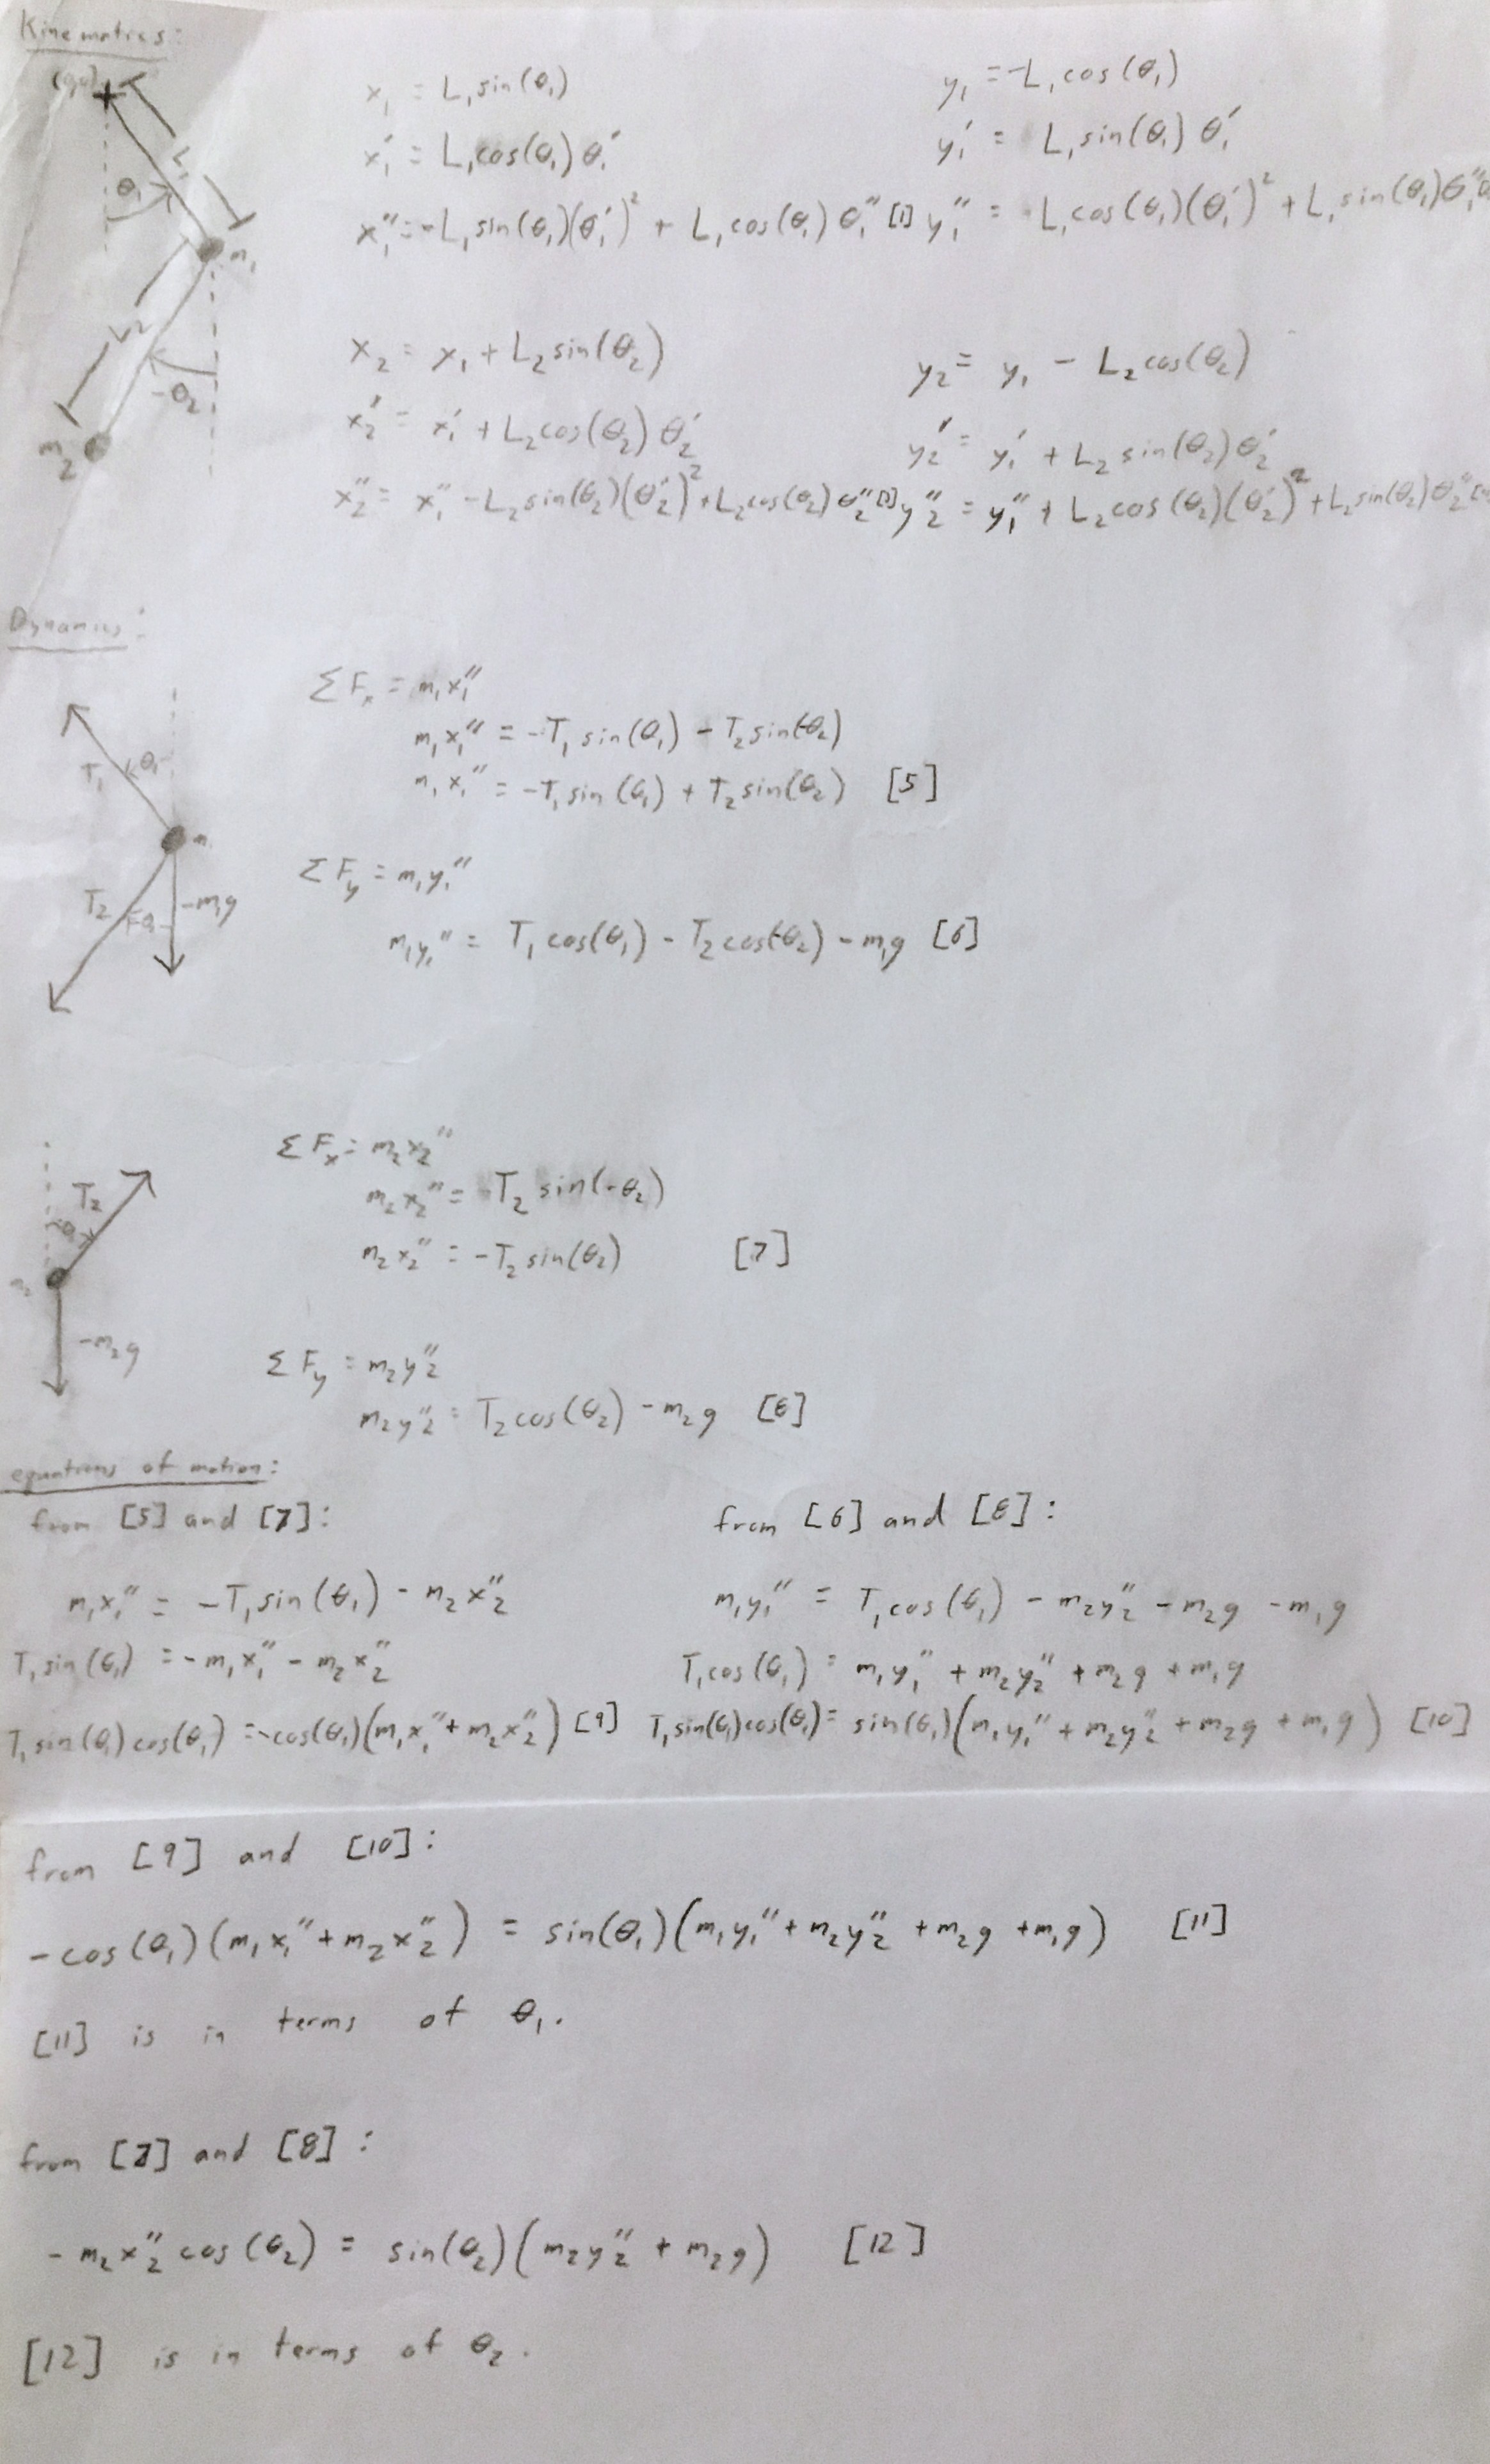 Kinematics:
L₁
θ₁
m₁
L₂
-θ₂
m₂
x₁ = L₁sin(θ₁)
y₁ = -L₁cos(θ₁)
x₁' = L₁cos(θ₁)θ₁'
y₁' = L₁sin(θ₁)θ₁'
x₁'' = -L₁sin(θ₁)(θ₁')² + L₁cos(θ₁)θ₁'' [1]
y₁'' = L₁cos(θ₁)(θ₁')² + L₁sin(θ₁)θ₁''
x₂ = x₁ + L₂sin(θ₂)
y₂ = y₁ - L₂cos(θ₂)
x₂' = x₁' + L₂cos(θ₂)θ₂'
y₂' = y₁' + L₂sin(θ₂)θ₂'
x₂'' = x₁'' - L₂sin(θ₂)(θ₂')² + L₂cos(θ₂)θ₂'' [3]
y₂'' = y₁'' + L₂cos(θ₂)(θ₂')² + L₂sin(θ₂)θ₂''
Dynamics:
T₁
θ₁
m₁
T₂
-m₁g
ΣFₓ = m₁x₁''
m₁x₁'' = -T₁sin(θ₁) - T₂sin(-θ₂)
m₁x₁'' = -T₁sin(θ₁) + T₂sin(θ₂) [5]
ΣF_y = m₁y₁''
m₁y₁'' = T₁cos(θ₁) - T₂cos(-θ₂) - m₁g [6]
T₂
m₂
-m₂g
ΣFₓ = m₂x₂''
m₂x₂'' = T₂sin(-θ₂)
m₂x₂'' = -T₂sin(θ₂) [7]
ΣF_y = m₂y₂''
m₂y₂'' = T₂cos(θ₂) - m₂g [8]
equations of motion:
from [5] and [7]:
from [6] and [8]:
m₁x₁'' = -T₁sin(θ₁) - m₂x₂''
m₁y₁'' = T₁cos(θ₁) - m₂y₂'' - m₂g - m₁g
T₁sin(θ₁) = -m₁x₁'' - m₂x₂''
T₁cos(θ₁) = m₁y₁'' + m₂y₂'' + m₂g + m₁g
T₁sin(θ₁)cos(θ₁) = -cos(θ₁)(m₁x₁'' + m₂x₂'') [9]
T₁sin(θ₁)cos(θ₁) = sin(θ₁)(m₁y₁'' + m₂y₂'' + m₂g + m₁g) [10]
from [9] and [10]:
-cos(θ₁)(m₁x₁'' + m₂x₂'') = sin(θ₁)(m₁y₁'' + m₂y₂'' + m₂g + m₁g) [11]
[11] is in terms of θ₁.
from [7] and [8]:
-m₂x₂''cos(θ₂) = sin(θ₂)(m₂y₂'' + m₂g) [12]
[12] is in terms of θ₂.